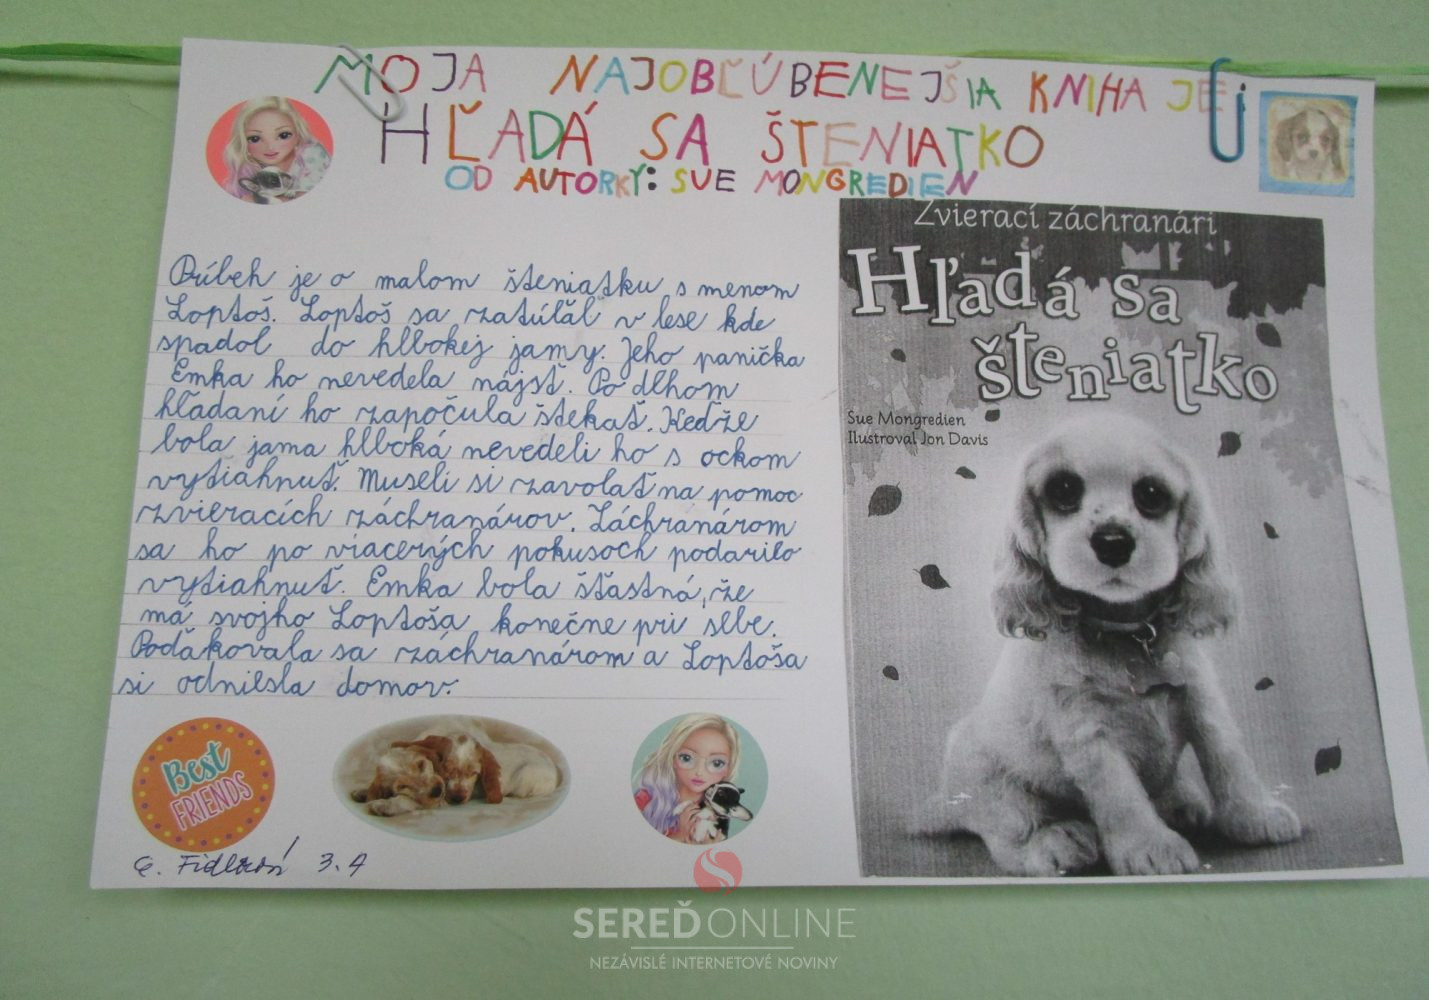 MOJA NAJOBĽÚBENEJŠIA KNIHA JE
HĽADÁ SA ŠTENIATKO
OD AUTORKY: SUE MONGREDIEN
Príbeh je o malom šteniatku s menom
Loptoš. Loptoš sa zatúľal v lese kde
spadol do hlbokej jamy. Jeho panička
Emka ho nevedela nájsť. Po dlhom
hľadaní ho započula štekať. Keďže
bola jama hlboká nevedeli ho s ockom
vytiahnuť. Museli si zavolať na pomoc
zvieracích záchranárov. Záchranárom
sa ho po viacerých pokusoch podarilo
vytiahnuť. Emka bola šťastná, že
má svojho Loptoša konečne pri sebe.
Poďakovala sa záchranárom a Loptoša
si odniesla domov.
Zvierací záchranári
Hľadá sa
šteniatko
Sue Mongredien
Ilustroval Jon Davis
Best
FRIENDS
3.A
SEREĎONLINE
NEZÁVISLÉ INTERNETOVÉ NOVINY